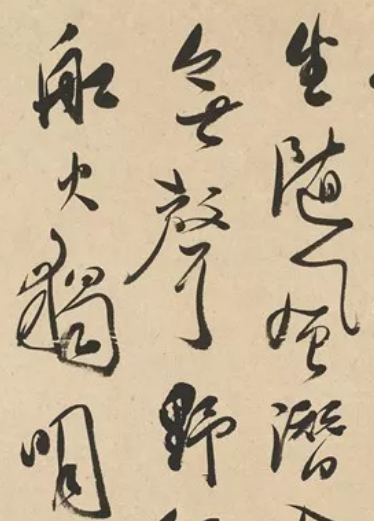 生隨風潛
無聲野
舡火獨明